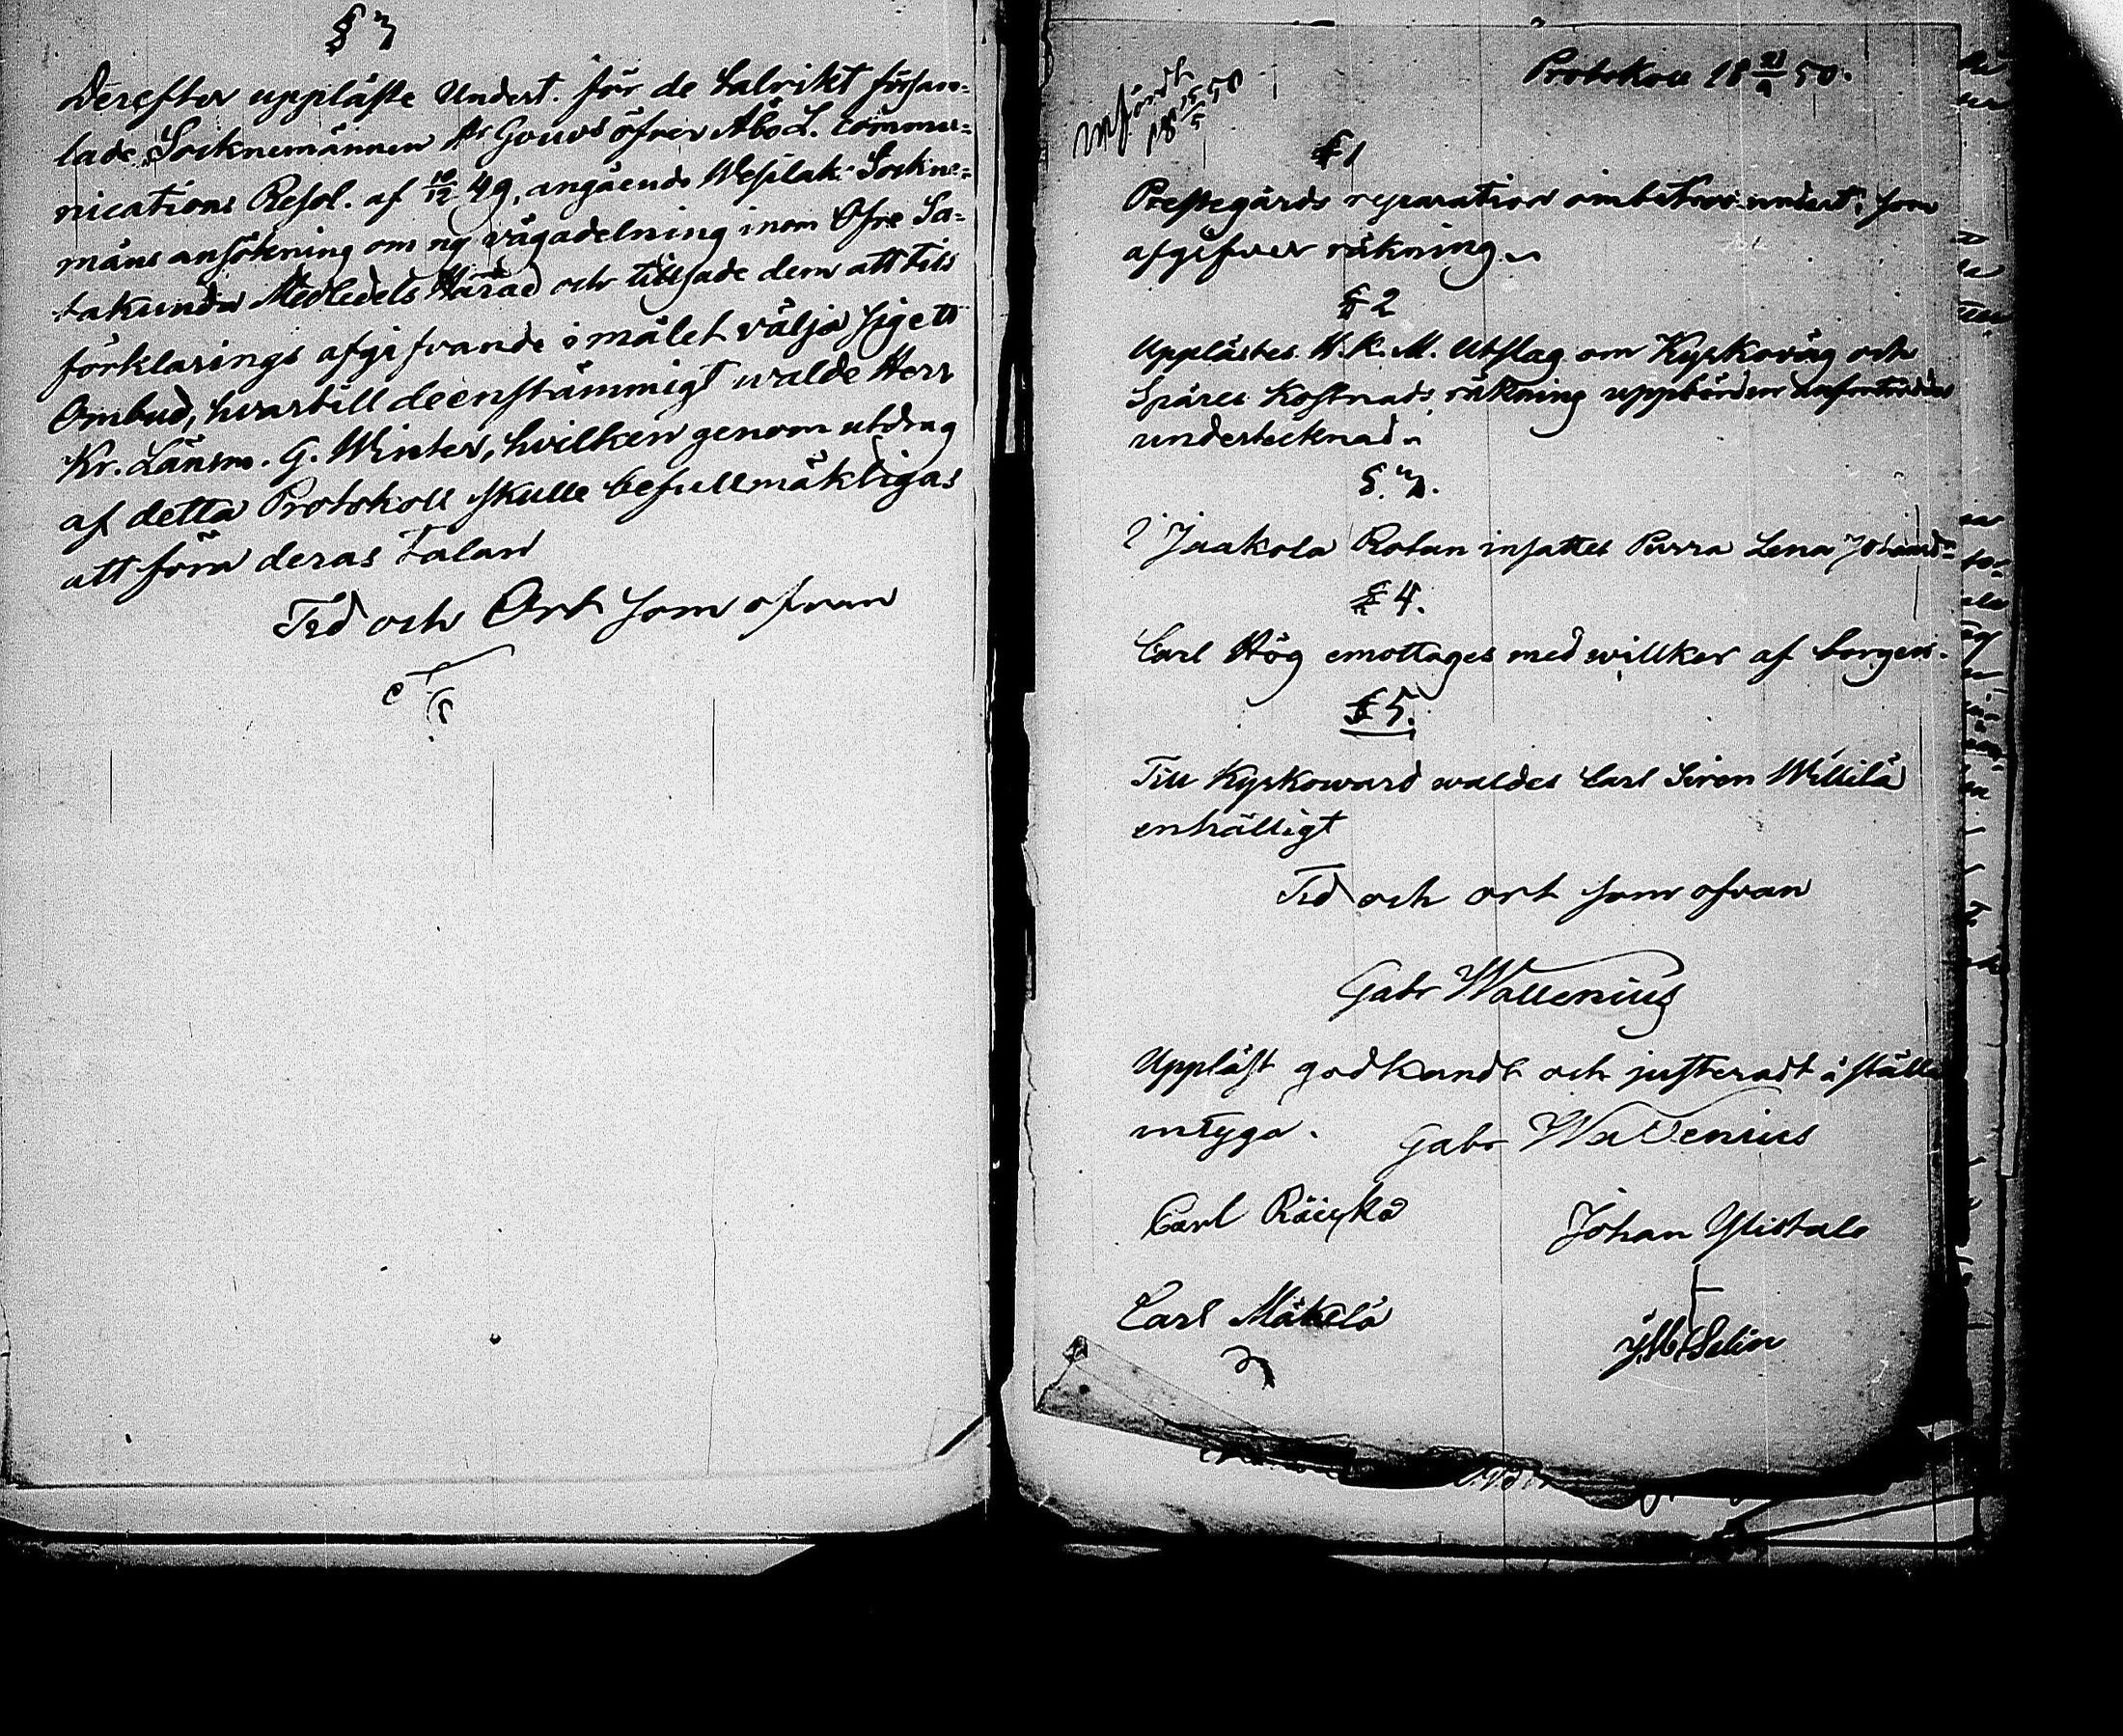 § 3
Derefter uppläste Undert. för de talrikt försam-
lade Socknemännen Hr Gouvs öfver Åbo L. commu-
nications Resol. af 10/12 49, angående Wesilaks Sockne-
mäns ansökning om ny vägadelning inom Öfre Sa-
takunda Medledels Härad och tillsade dem att till
förklarings afgifvande i målet välja sig ett
Ombud, hvartill de enstämmigt walde Herr
Kr. Länsm. G. Winter, hvilken genom utdrag
af detta Protokoll skulle befullmäktigas
att föra deras talan
Tid och Ort som ofvan
Protokoll 18 21/4 50.
Infördt
18 15/5 50
§ 1
Prestegårds reparation ombetros undert. som
afgifver räkning.
§ 2
Upplästes H.K.M. Utslag om Kyrkoväg och
Spåres Kostnads räkning uppbörden
undertecknad.
§. 3.
I Jaakola Rotan insattes Purra Lena
§ 4.
Carl Hög emottages med willkor af borgen.
§ 5.
Till Kyrkoward waldes Carl Siren Willilä
enhälligt
Tid och ort som ofvan
Gabr Wallenius
Uppläst godkändt och justeradt å ställe
intyga. Gabr Wallenius
Carl Räiskä
Johan Ylistalo
Carl Mäkelä
Selin